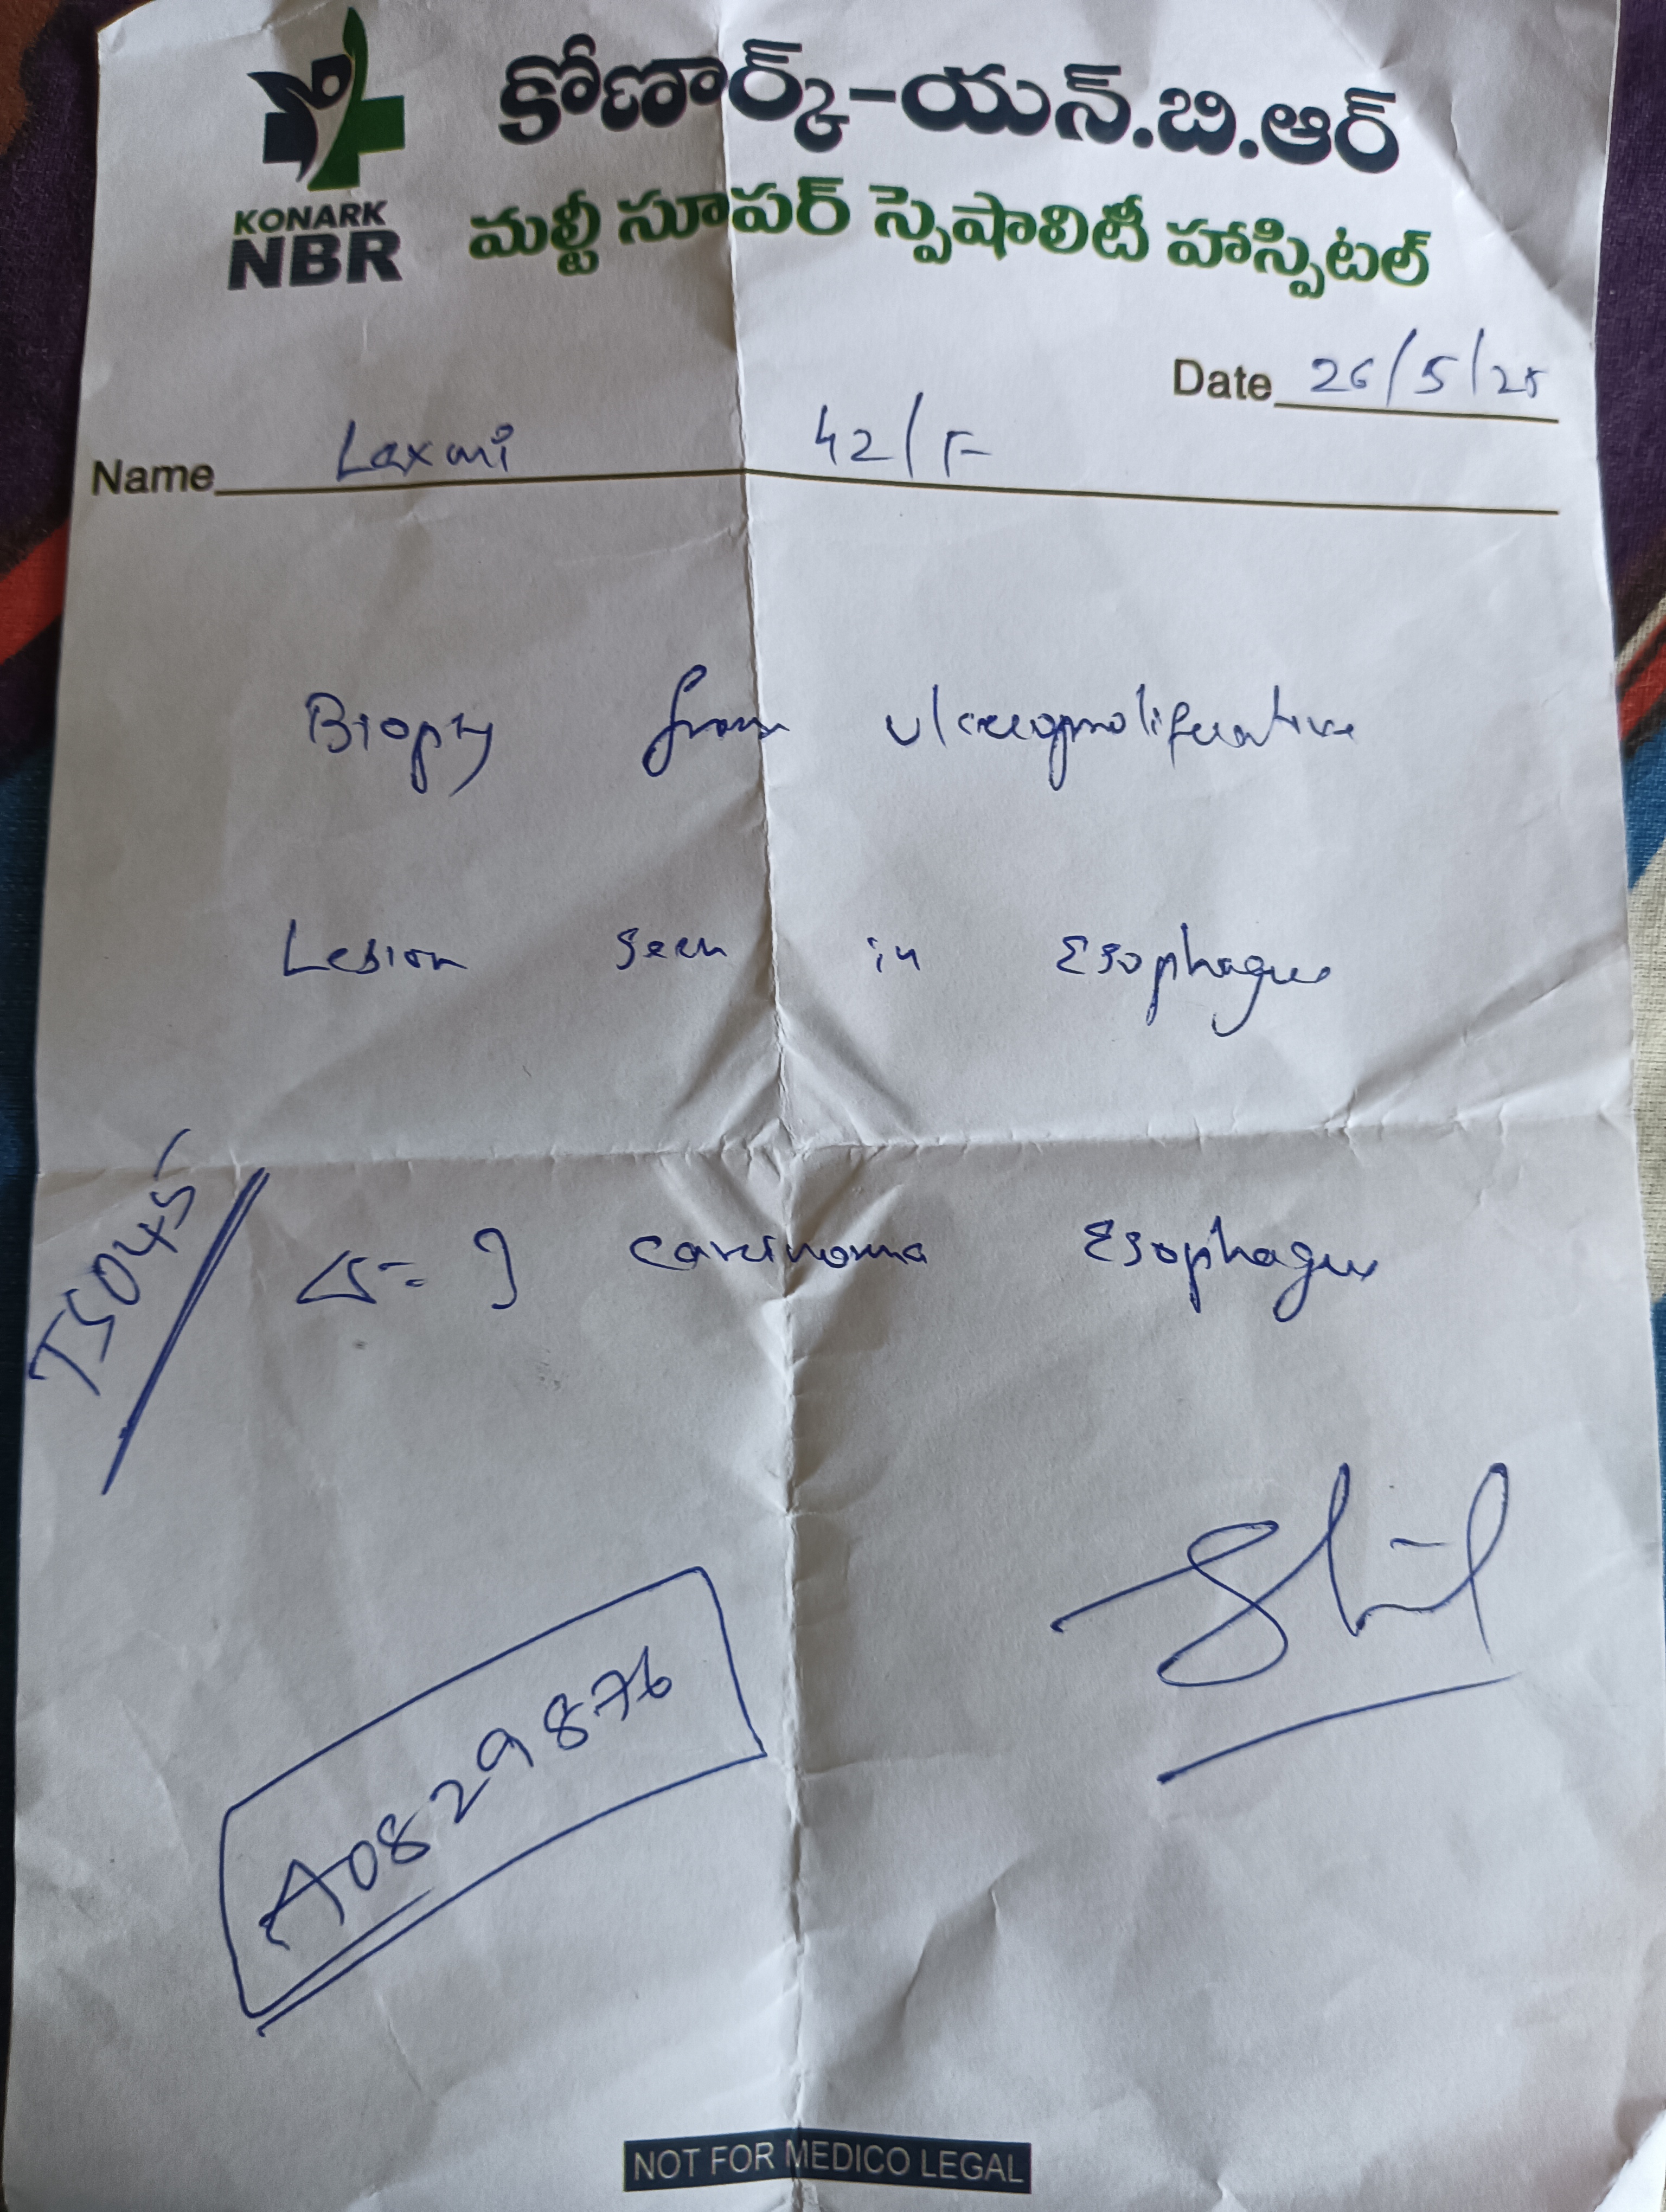 కోణార్క్-యన్.బి.ఆర్
మల్టీ సూపర్ స్పెషాలిటీ హాస్పిటల్
KONARK
NBR
Date 26/5/25
Name Laxmi 42/F
Biopsy from ulceroproliferative
Lesion seen in Esophagus
TS045
Δ = ? carcinoma Esophagus
A0829876
NOT FOR MEDICO LEGAL